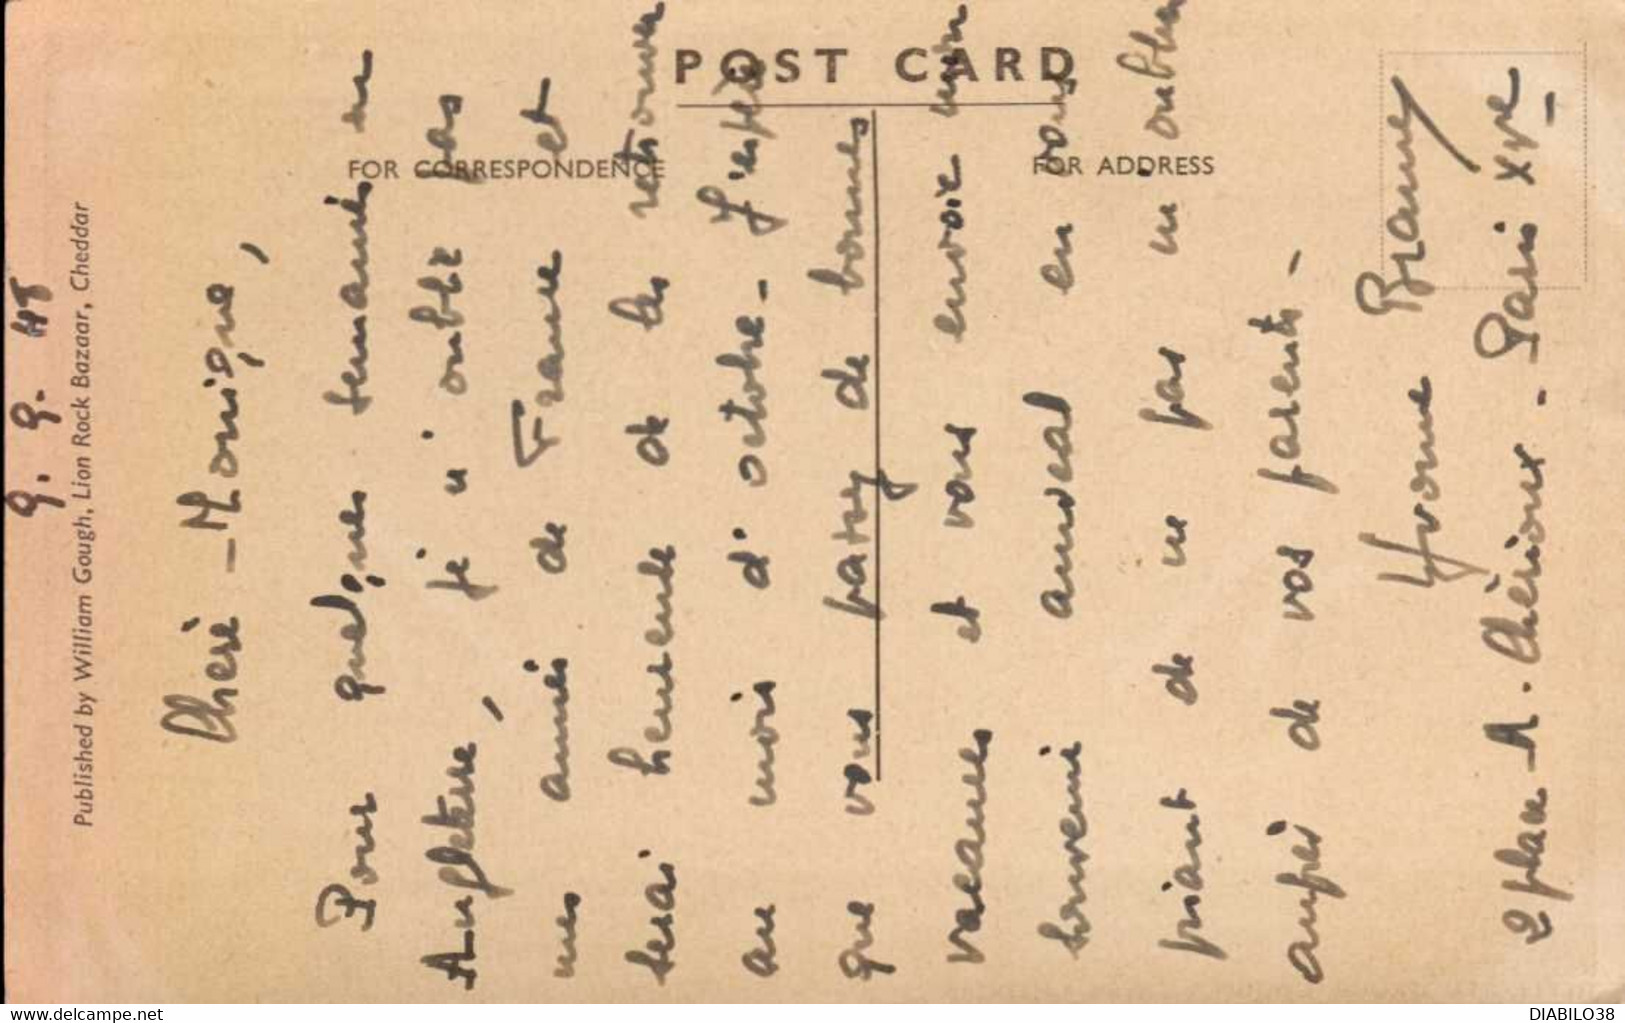 POST CARD
FOR CORRESPONDENCE
FOR ADDRESS
Published by William Gough, Lion Rock Bazaar, Cheddar
9. 9. 48
Chère Monique,
Pour quelques semaines en
Angleterre, je n'oublie pas
mes amies de France et
serai heureuse de les retrouver
au mois d'octobre - J'espère
que vous passez de bonnes
vacances et vous envoie mon
souvenir amical en vous
priant de ne pas m'oublier
auprès de vos parents -
Yvonne
2 place A. Chérioux - Paris XVe
www.delcampe.net
DIABILO38